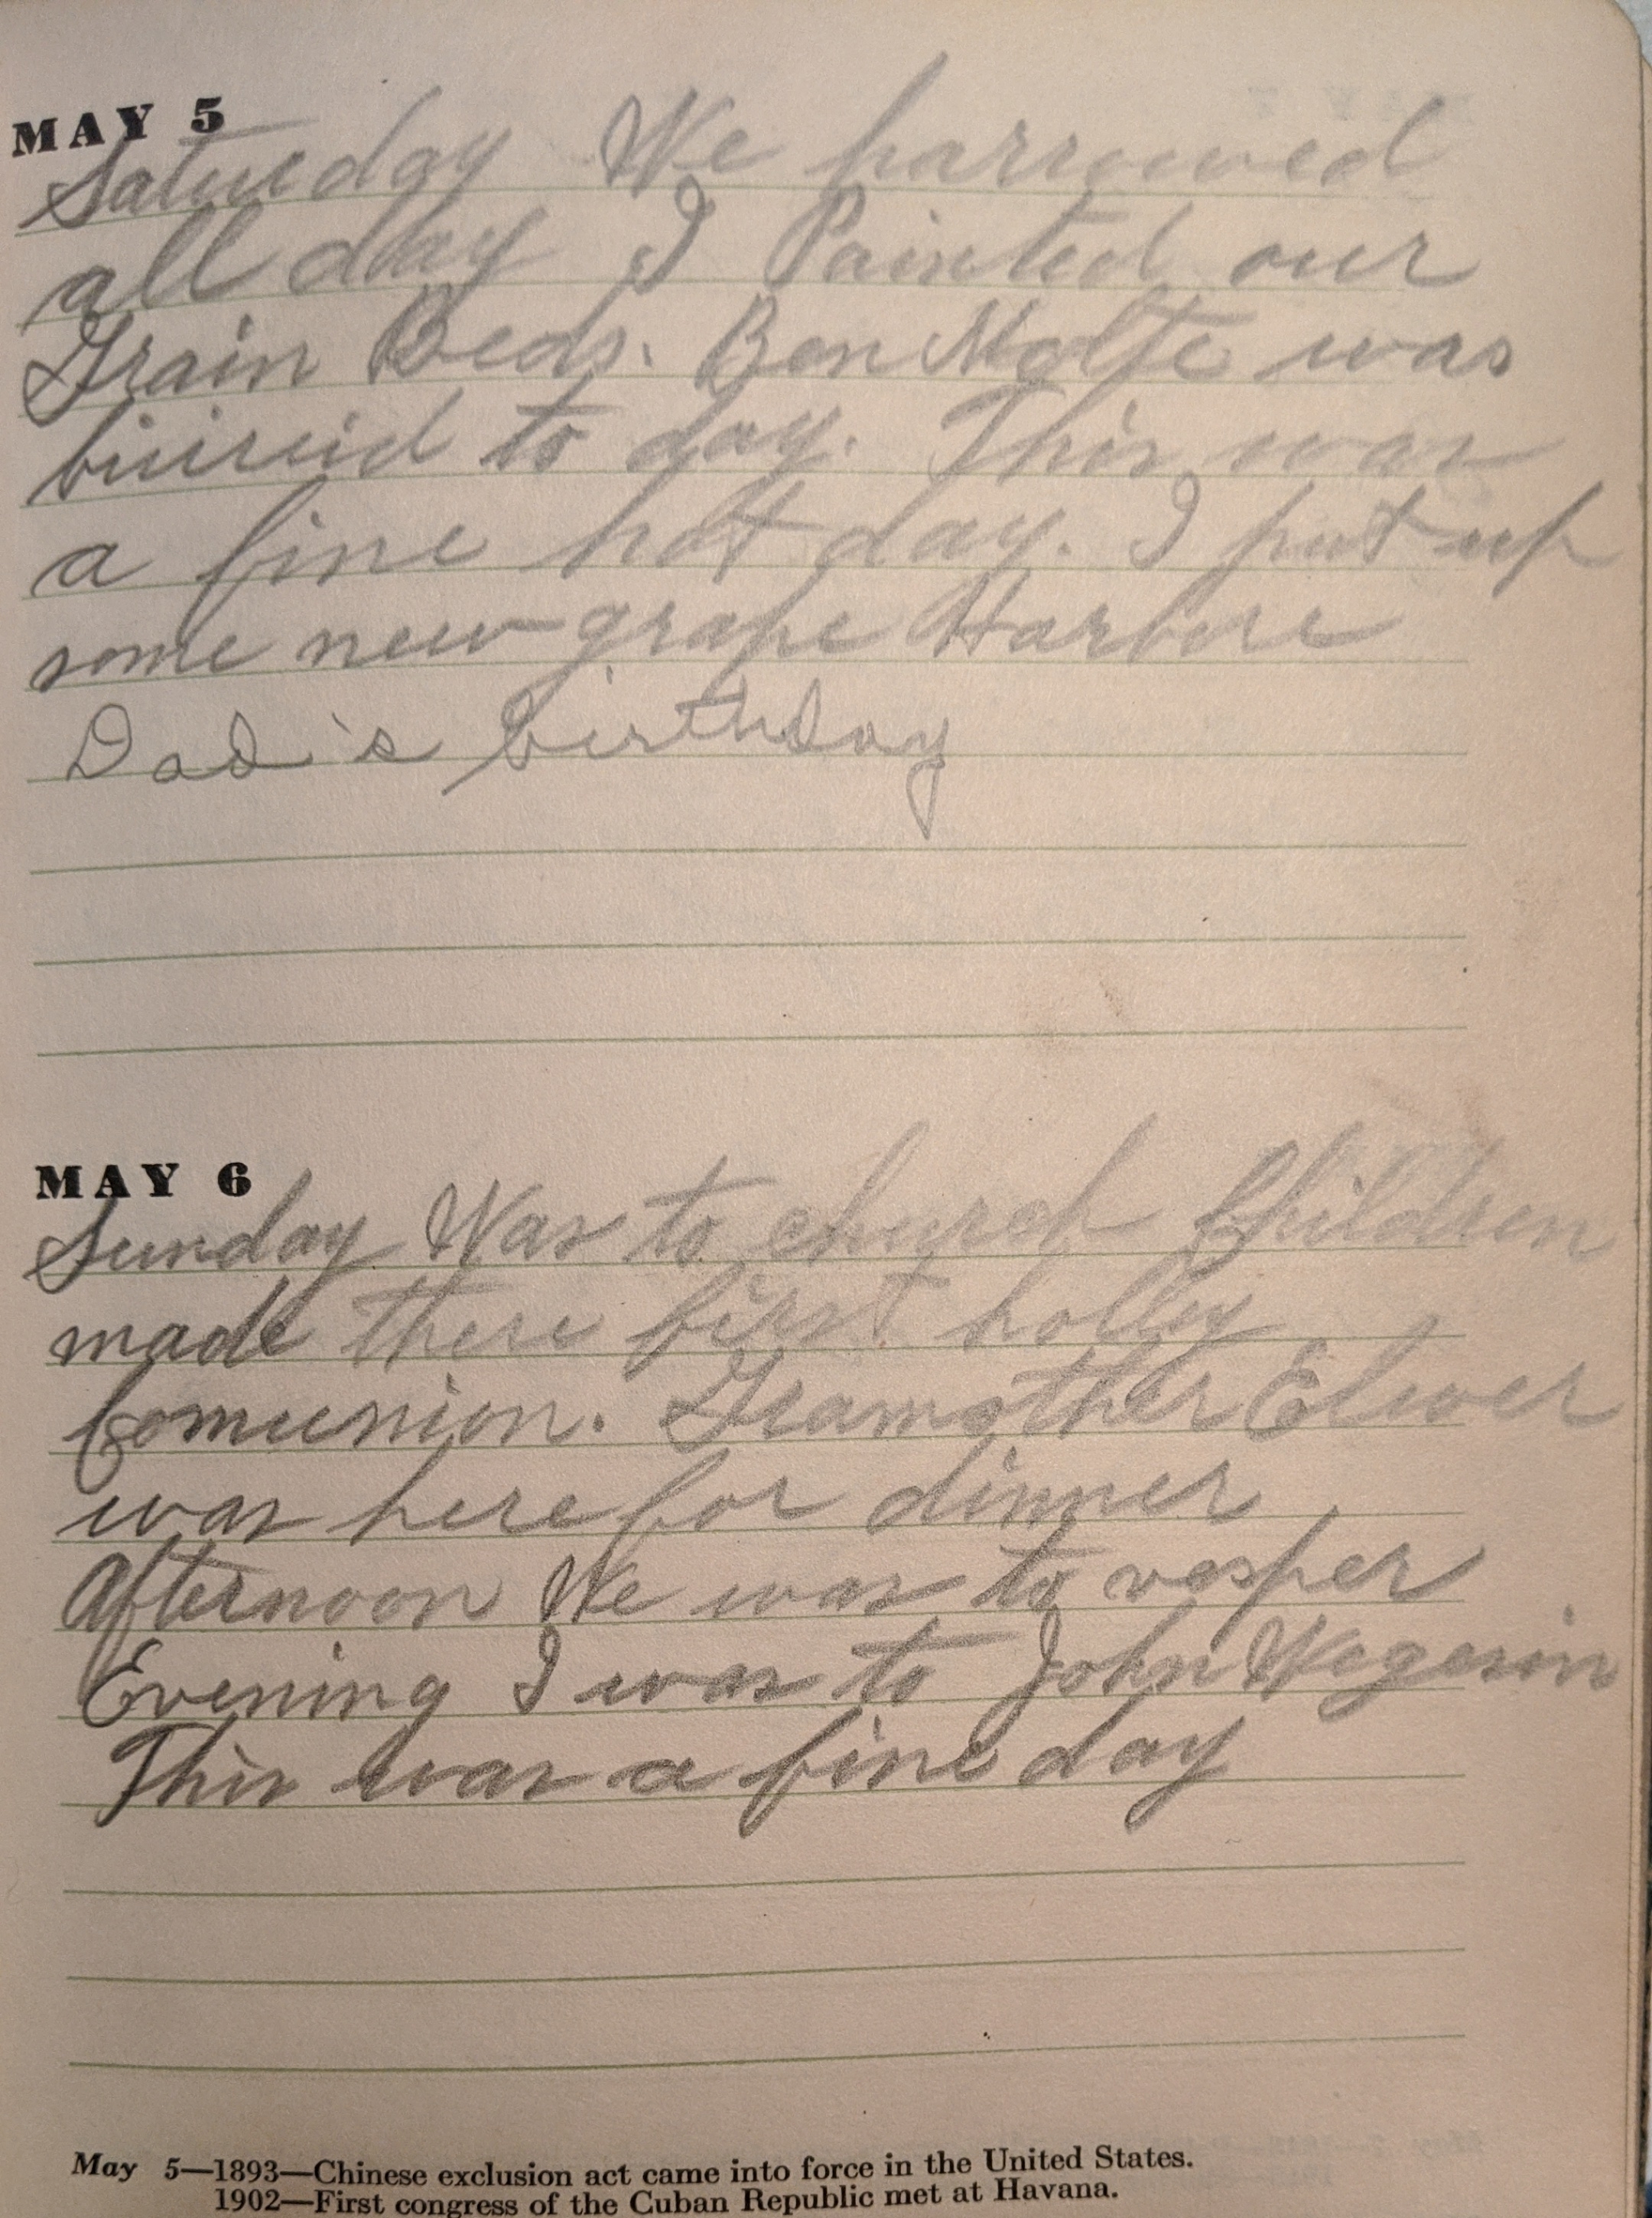 MAY 5
Saturday We harrowed
all day I Painted our
Grain Beds. Ben Nolte was
buireid to day. This was
a fine hot day. I put up
some new grape Harbore
Dad's birthday
MAY 6
Sunday Was to church Children
made there first holly
Comunion. Gramother Elwer
was here for dinner
Afternoon We was to vesper
Evening I was to John Wegesin
This was a fine day
May 5—1893—Chinese exclusion act came into force in the United States.
1902—First congress of the Cuban Republic met at Havana.